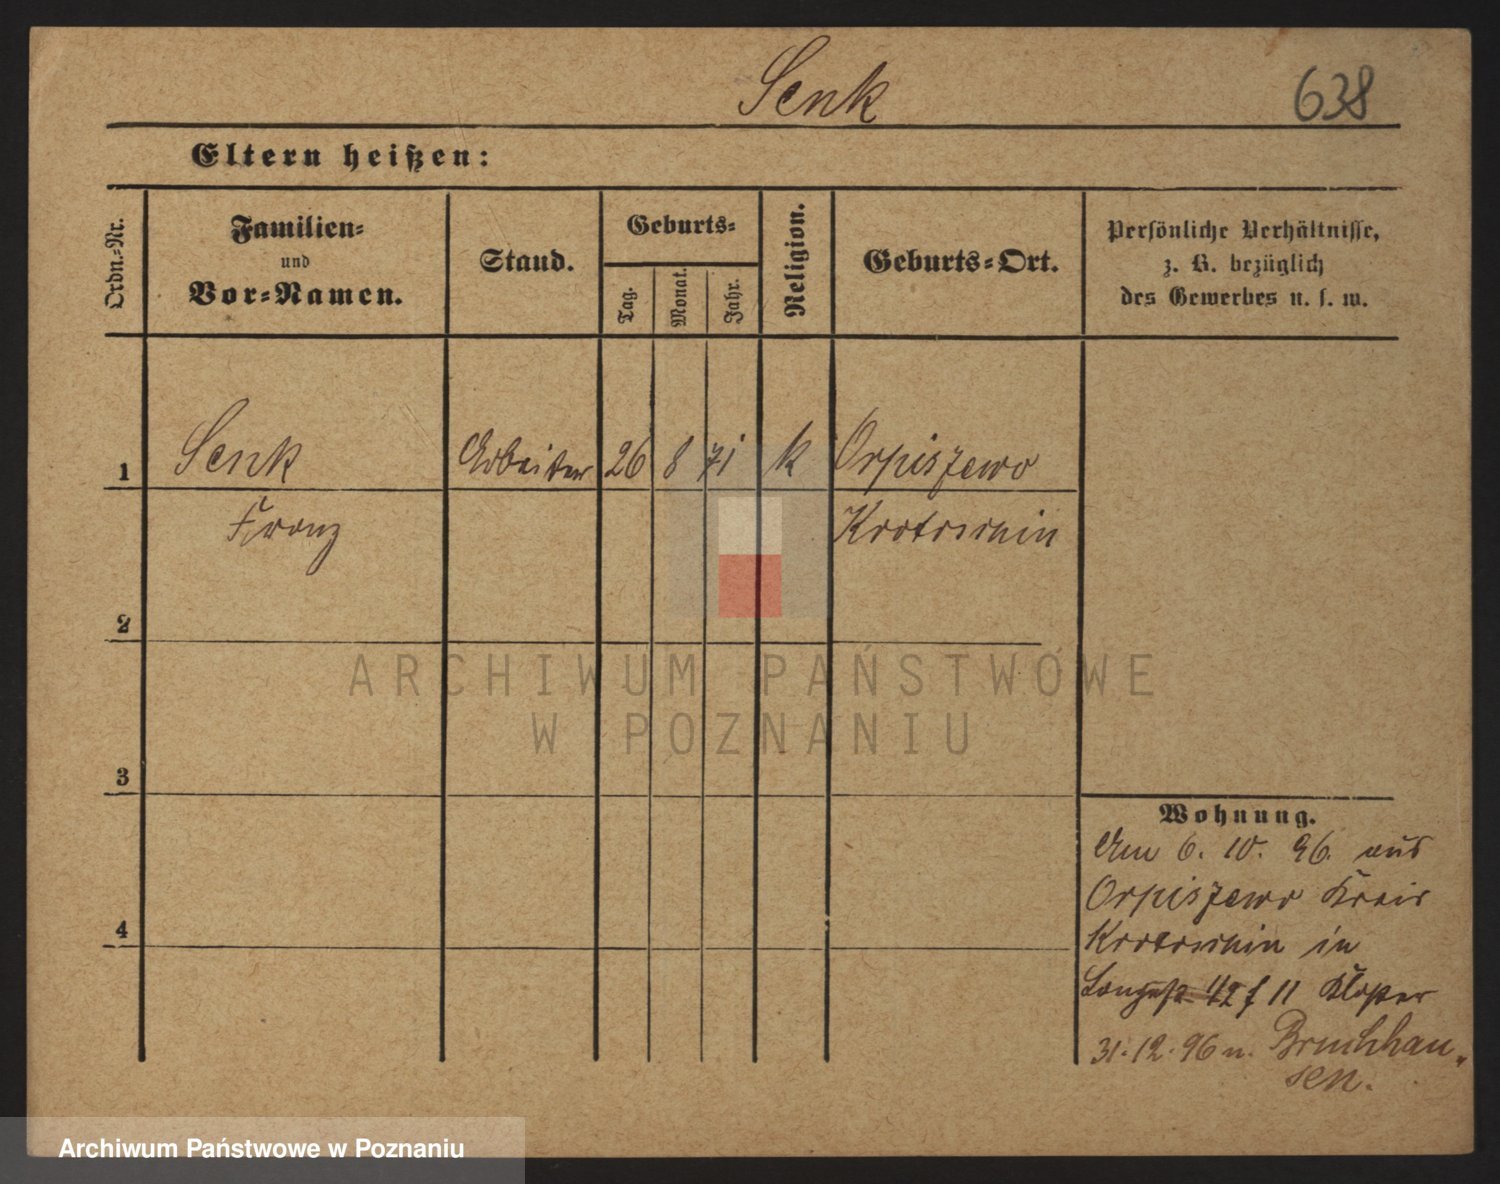 Senk
638
Eltern heißen:
Ordn.-Nr.
Familien-
und
Vor-Namen.
Stand.
Geburts-
Tag.
Monat.
Jahr.
Religion.
Geburts-Ort.
Persönliche Verhältnisse,
z. B. bezüglich
des Gewerbes u. s. w.
1 Senk Arbeiter 26 8 71 k Orpiszewo
Franz Krotoschin
2
3
4
Wohnung.
Am 6. 10. 96. aus
Orpiszewo Kreis
Krotoschin in
Langest 42 11 Kloster
31.12.96 n. Bruchhau-
sen.
ARCHIWUM PAŃSTWOWE
W POZNANIU
Archiwum Państwowe w Poznaniu